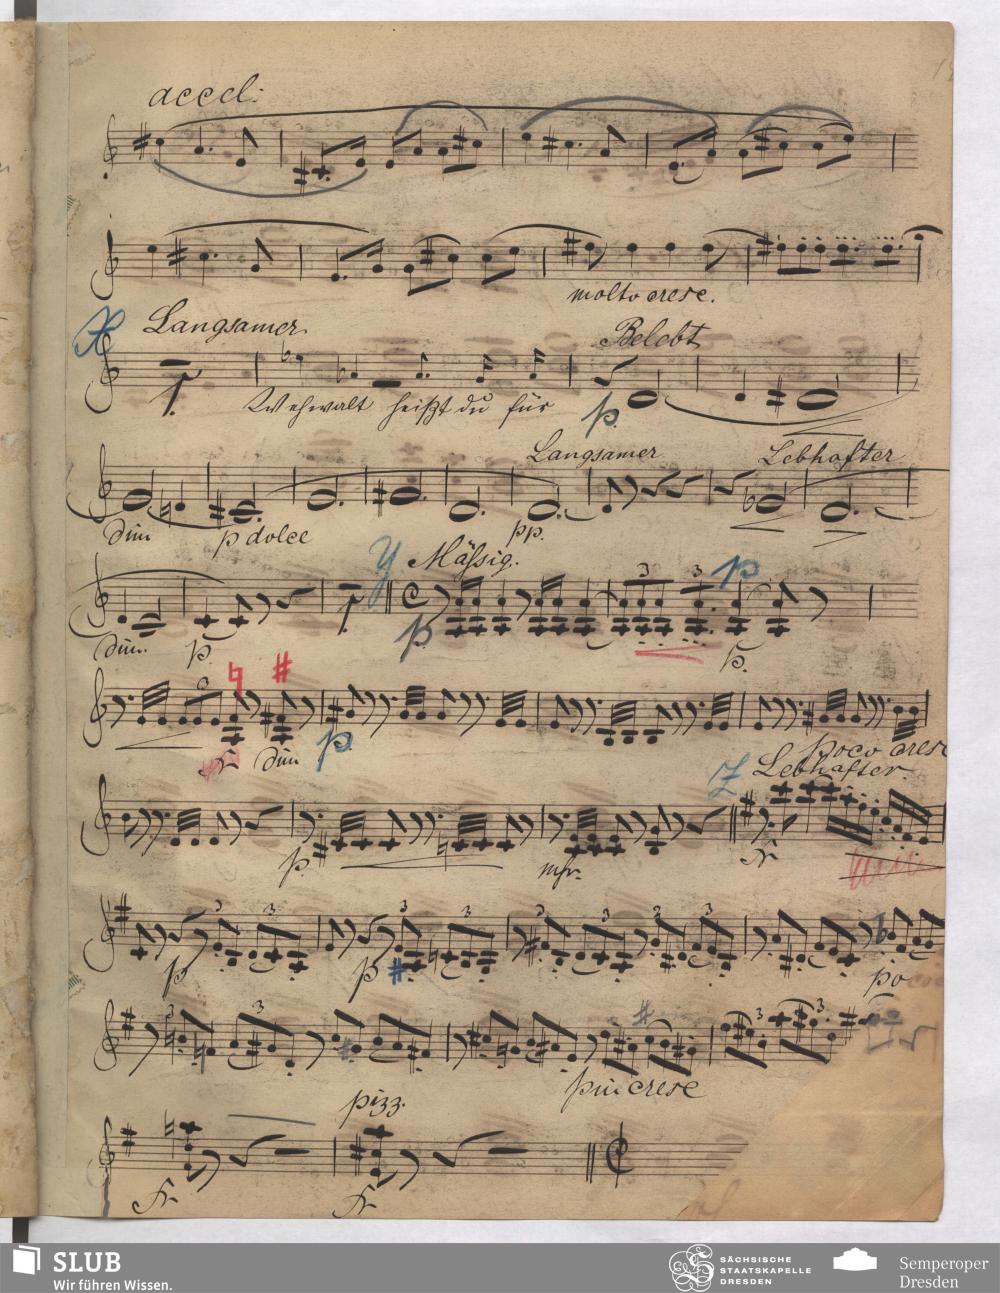 accel:
molto cresc.
X Langsamer. Belebt
Wehwalt heißt du für
p.
Langsamer Lebhafter
dim p dolce pp.
Y Mäßig. p
dim. p. p. p.
3 3
3
fr dim p. poco cresc
Z Lebhafter.
p. mfr. fr
3 3 3 3 3 3 3 3
p p po
3 3 3 3
più cresc
pizz.
fr fr
SLUB
Wir führen Wissen.
SÄCHSISCHE
STAATSKAPELLE
DRESDEN
Semperoper
Dresden